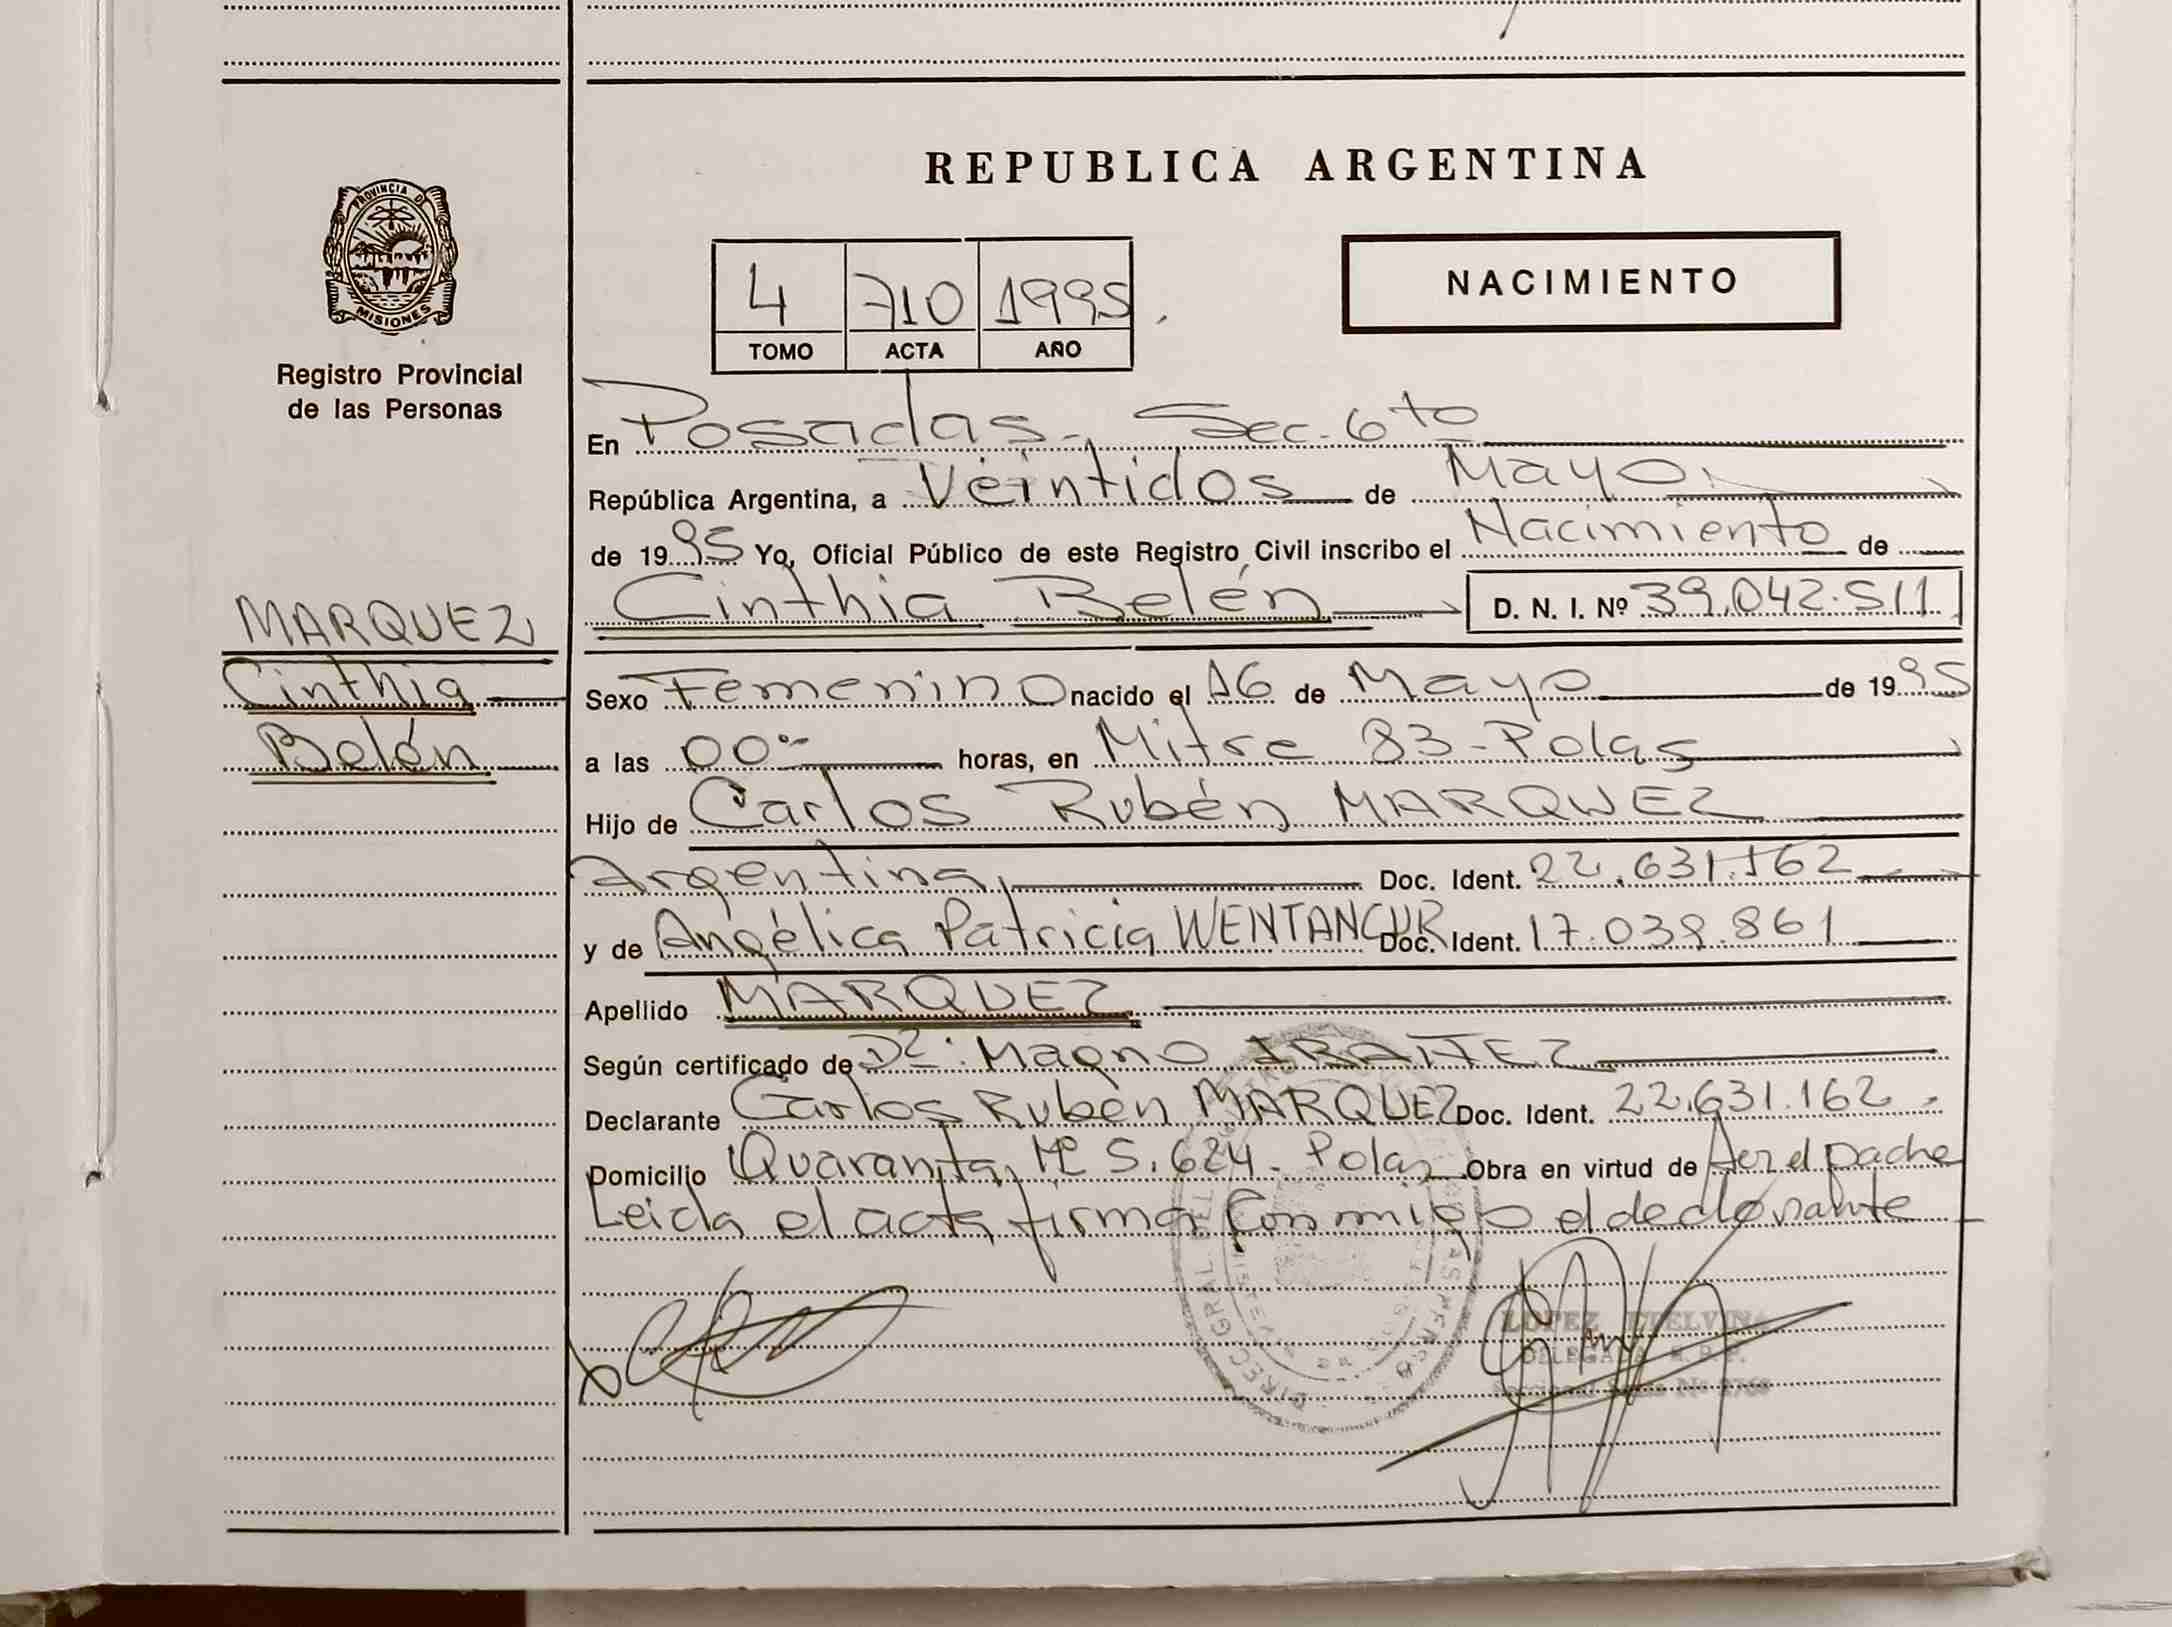 REPUBLICA ARGENTINA
PROVINCIA DE
MISIONES
Registro Provincial
de las Personas
4 710 1995
TOMO ACTA AÑO
NACIMIENTO
En Posadas, Sec. 6to
República Argentina, a Veintidos de Mayo
de 1995 Yo, Oficial Público de este Registro Civil inscribo el Nacimiento de
Cinthia Belén D. N. I. Nº 39.042.511
MARQUEZ
Cinthia
Belén
Sexo Femenino nacido el 16 de Mayo de 1995
a las 00 horas, en Mitre 83-Pdas
Hijo de Carlos Rubén MARQUEZ
Argentina, Doc. Ident. 22.631.162
y de Angélica Patricia WENTANCUR Doc. Ident. 17.039.861
Apellido MARQUEZ
Según certificado de Dr. Magno
Declarante Carlos Ruben MARQUEZ Doc. Ident. 22.631.162
Domicilio Quaranta, Nº 5.624. Pdas Obra en virtud de Ser el padre
Leida el acta firma conmigo el declarante
LOPEZ ETELVINA
DELEGADA R. P. P.